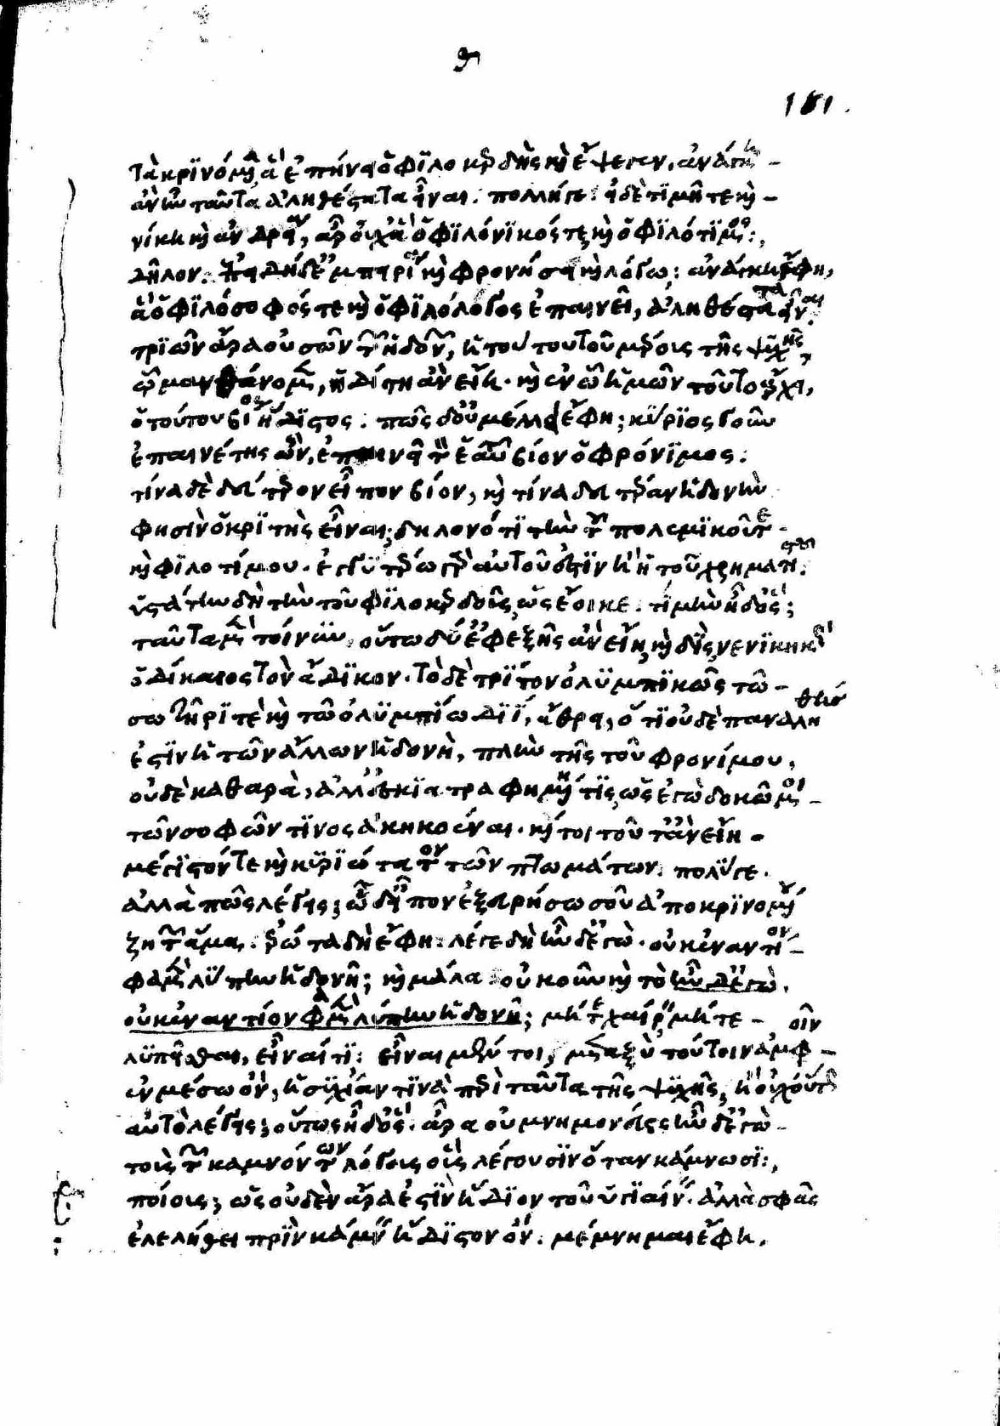 θ
181.
τὰ κρινόμενα, ἃ ἐπῄνει ὁ φιλοκερδὴς καὶ ἔψεγεν, ἀνάγκη
ἂν ἦν ταῦτα ἀληθέστατα εἶναι. πολλή γε. εἰ δὲ τιμῇ τε καὶ
νίκῃ καὶ ἀνδρείᾳ, ἆρ' οὐχ ἃ ὁ φιλόνικός τε καὶ ὁ φιλότιμος;
δῆλον. ἐπειδὴ δ' ἐμπειρίᾳ καὶ φρονήσει καὶ λόγῳ; ἀνάγκη ἔφη,
ἃ ὁ φιλόσοφός τε καὶ ὁ φιλόλογος ἐπαινεῖ, ἀληθέστατα εἶναι.
τριῶν ἄρα οὐσῶν τῶν ἡδονῶν, ἡ τούτου τοῦ μέρους τῆς ψυχῆς,
ᾧ μανθάνομεν, ἡδίστη ἂν εἴη. καὶ ἐν ᾧ ἡμῶν τοῦτο ἄρχει,
ὁ τούτου βίος ἥδιστος. πῶς δ' οὐ μέλλει ἔφη; κύριος γοῦν
ἐπαινέτης ὢν, ἐπαινεῖ τὸν ἑαυτοῦ βίον ὁ φρόνιμος.
τίνα δὲ δεύτερον εἶπον βίον, καὶ τίνα δευτέραν ἡδονὴν
φησὶν ὁ κριτὴς εἶναι; δῆλον ὅτι τὴν τοῦ πολεμικοῦ τε
καὶ φιλοτίμου. ἐγγυτέρω γὰρ αὐτοῦ ἐστὶν ἢ ἡ τοῦ χρηματιστοῦ.
ὑστάτην δὴ τὴν τοῦ φιλοκερδοῦς, ὡς ἔοικε. τί μὴν ἦ δ' ὅς;
ταῦτα μὲν τοίνυν οὕτω δύ' ἐφεξῆς ἂν εἴη, καὶ δὶς νενικηκὼς
ὁ δίκαιος τὸν ἄδικον. τὸ δὲ τρίτον ὀλυμπικῶς τῷ
σωτῆρί τε καὶ τῷ ὀλυμπίῳ Διῒ, ἄθρει, ὅτι οὐδὲ παναληθής
ἐστιν ἡ τῶν ἄλλων ἡδονὴ, πλὴν τῆς τοῦ φρονίμου,
οὐδὲ καθαρὰ, ἀλλ' ἐσκιαγραφημένη τις, ὡς ἐγὼ δοκῶ μοι
τῶν σοφῶν τινος ἀκηκοέναι. καί τοι τοῦτ' ἂν εἴη
μέγιστόν τε καὶ κυριώτατον τῶν πτωμάτων. πολύ γε.
ἀλλὰ πῶς λέγεις; ὧδ' εἶπον ἐξευρήσω σοῦ ἀποκρινομένου
ζητῶν ἅμα. ἐρώτα δὴ ἔφη. λέγε δὴ ἦν δ' ἐγώ. οὐκ ἐναντίον
φαμὲν λύπην ἡδονῇ; καὶ μάλα. οὐκοῦν καὶ τὸ ἦν δ' ἐγὼ.
οὐκ ἐναντίον φαμὲν λύπην ἡδονῇ; μήτε χαίρειν μήτε
λυπεῖσθαι, εἶναί τι; εἶναι μέντοι, μεταξὺ τούτοιν ἀμφοῖν
ἐν μέσῳ ὂν, ἡσυχίαν τινὰ περὶ ταῦτα τῆς ψυχῆς, ἢ οὐχ οὕτως
αὐτὸ λέγεις; οὕτως ἦ δ' ὅς. ἆρα οὐ μνημονεύεις ἦν δ' ἐγὼ
τοὺς τῶν καμνόντων λόγους οὓς λέγουσιν ὅταν κάμνωσι;
ποίους; ὡς οὐδὲν ἄρα ἐστὶν ἥδιον τοῦ ὑγιαίνειν. ἀλλὰ σφᾶς
ἐλελήθει πρὶν κάμνειν ἥδιστον ὄν. μέμνημαι ἔφη.